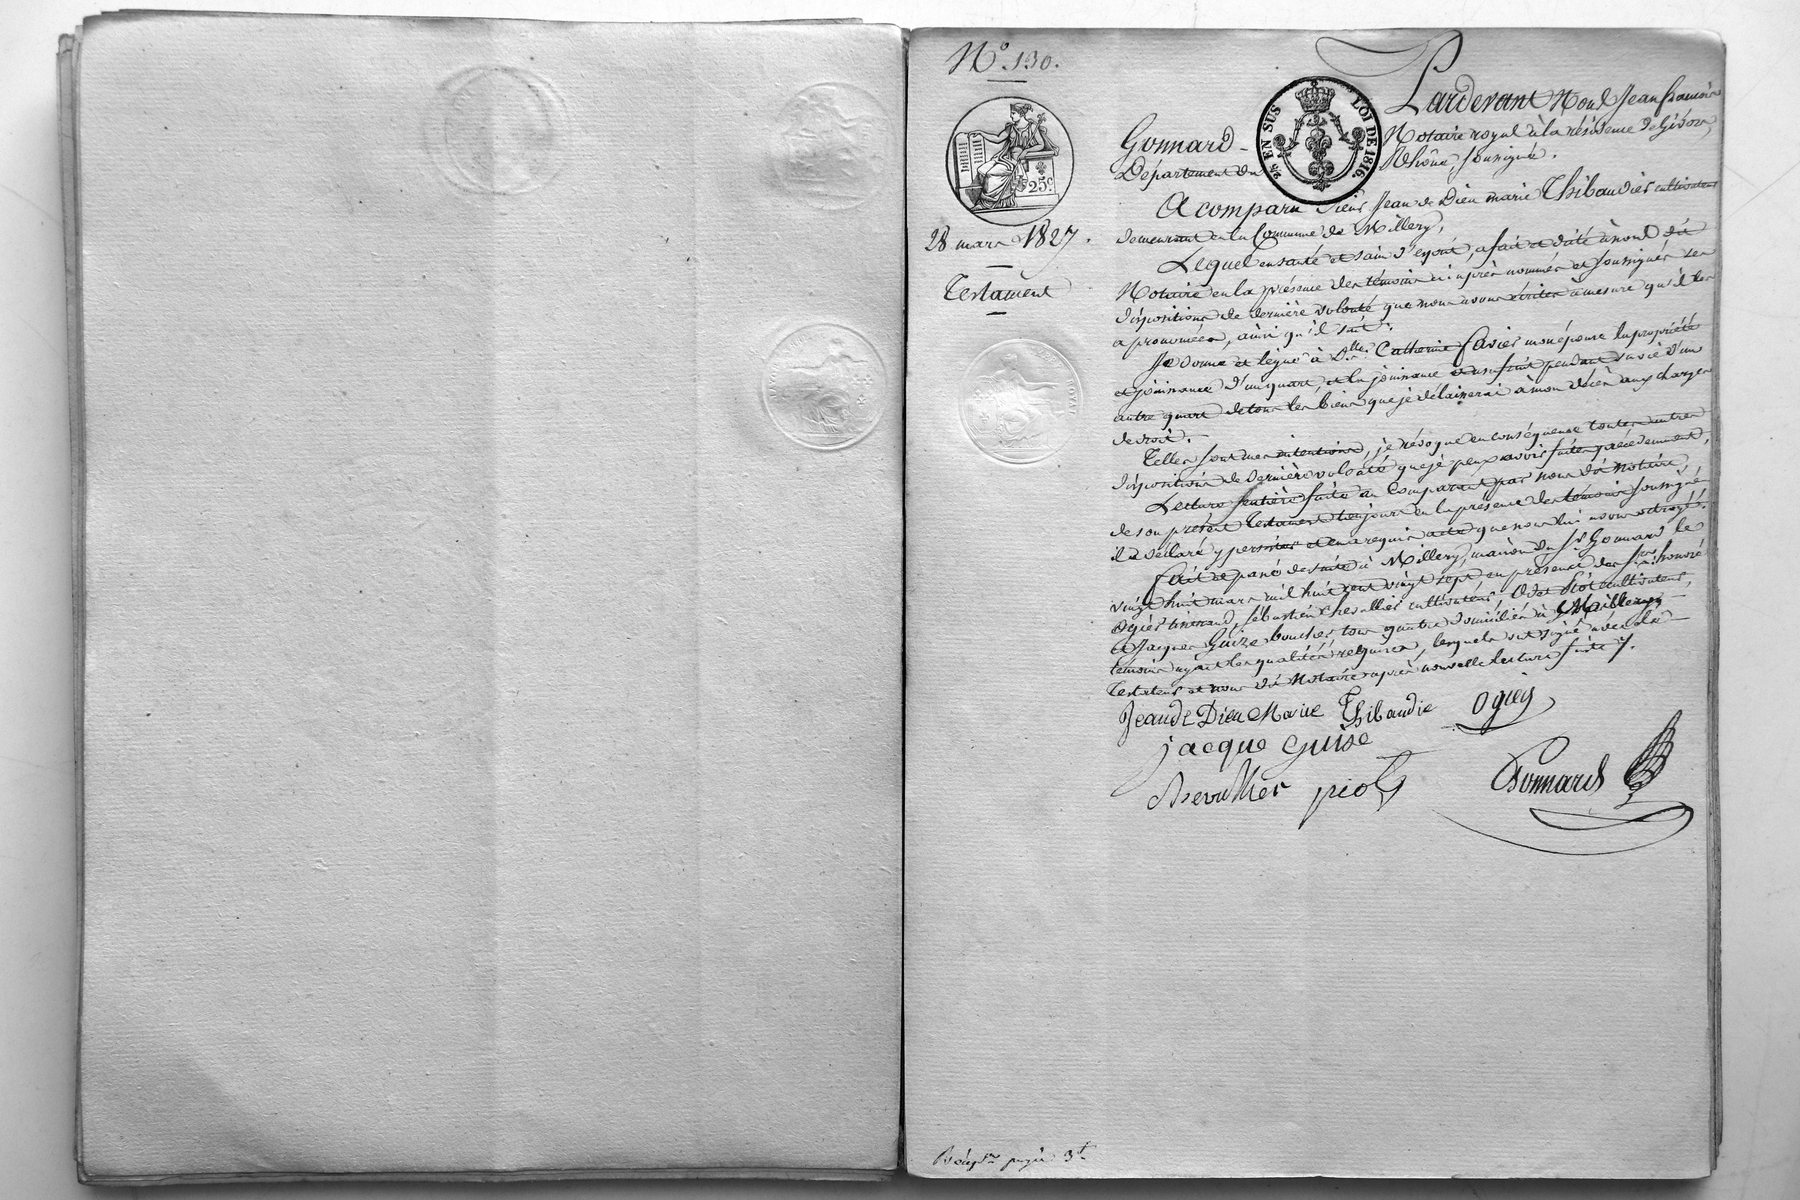 N° 130.
25c
28 mars 1827.
Testament
2/10 EN SUS LOI DE 1816.
Pardevant Nous Jean françois
Gonnard Notaire royal à la résidence de Givors,
Département du Rhône, soussigné.
A comparu Sieur Jean de Dieu marie Thibaudier cultivateur
demeurant en la Commune de Millery,
Lequel en santé et sain d'esprit, a fait et dicté à nous dit
Notaire en la présence des témoins ci après nommés et soussignés ses
dispositions de dernière volonté que nous avons écrites à mesure qu'il les
a prononcées, ainsi qu'il suit:
Je donne et lègue à Dlle Catherine favier mon épouse la propriété
et jouissance d'un quart, et la jouissance et usufruit pendant sa vie d'un
autre quart de tous les biens que je délaisserai à mon décès aux charges
de droit.
Telles sont mes intentions, je révoque en conséquence toutes autres
dispositions de dernière volonté que je peux avoir faites précédemment,
Lecture entière faite au Comparant par nous dit Notaire,
de son présent testament toujours en la présence des témoins soussignés
il a déclaré y persister et en a requis acte que nous lui avons octroyé.
fait et passé de suite à Millery, maison du Sr Gonnard le
vingt huit mars mil huit cent vingt sept en présence des Srs honoré
ogier, Sébastien Chevallier cultivateur, piot cultivateur,
et Jacques Guize boucher tous quatre domiciliés à Millery,
témoins ayant les qualités requises, lesquels ont signé avec le
Testateur et nous dit Notaire après nouvelle lecture faite /.
Jean de Dieu Marie Thibaudie ogiey
jacque guise
chevallier piot Gonnard